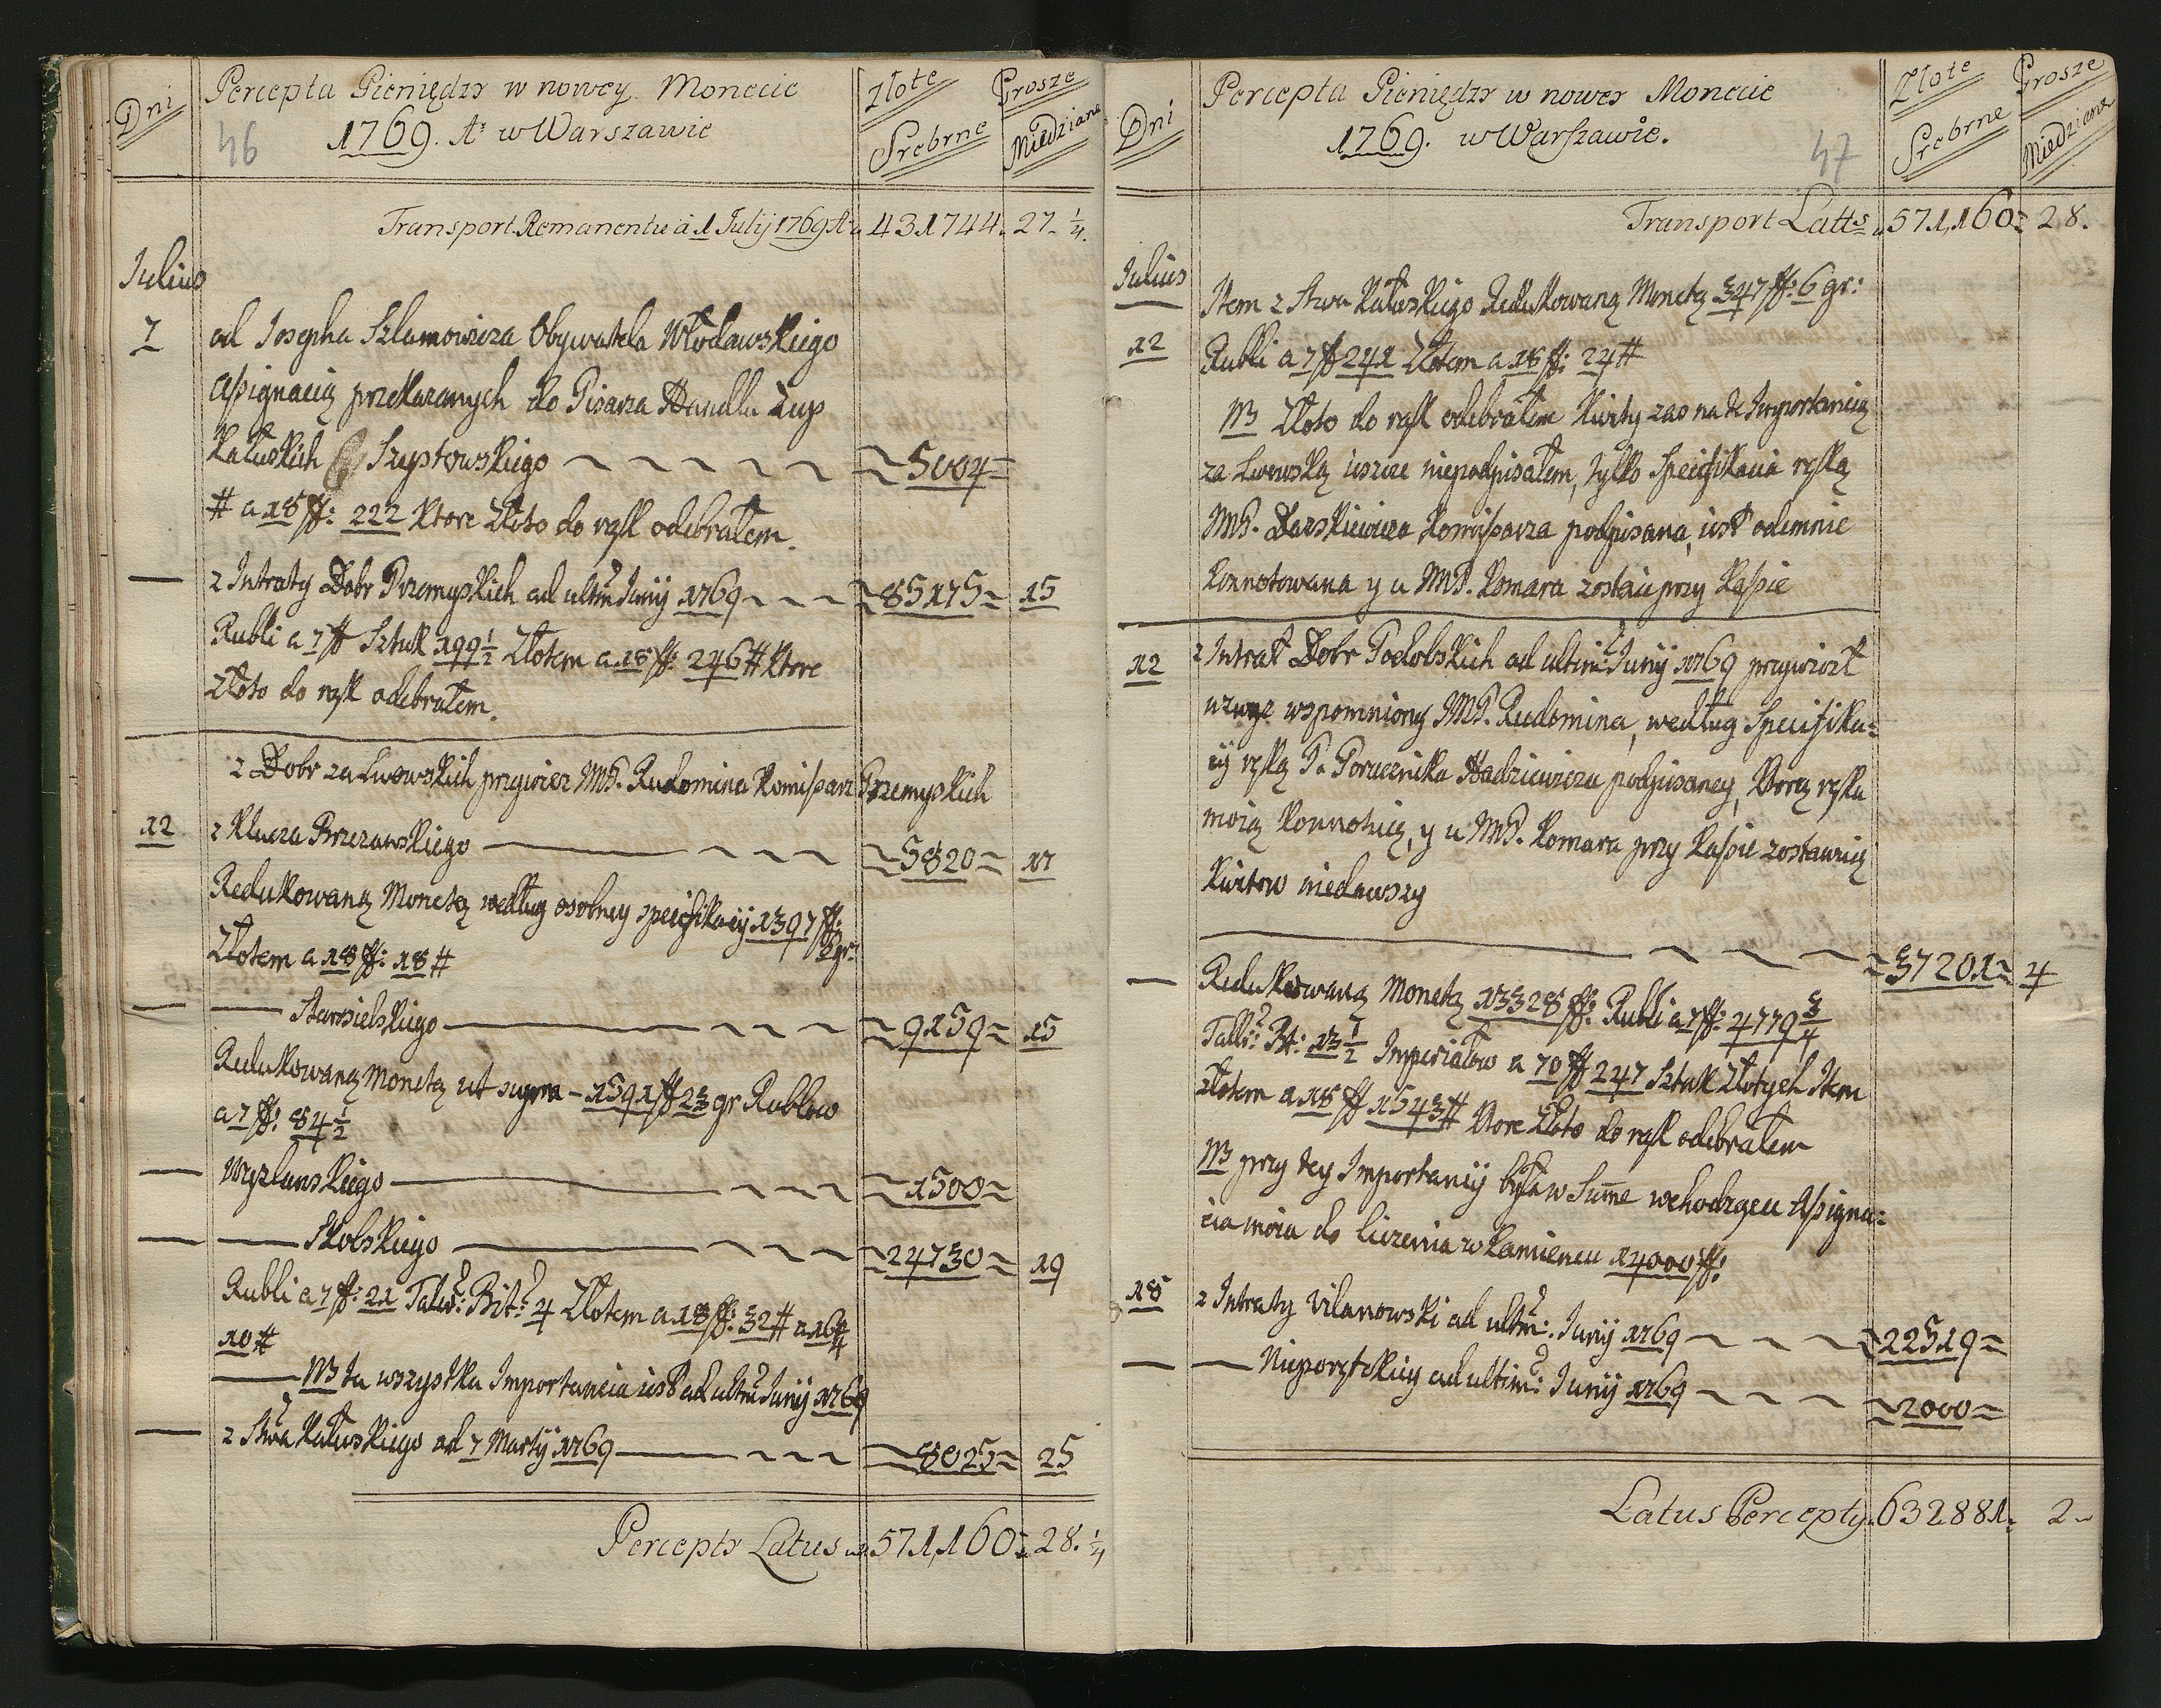 Dni
Percepta Pieniędzy w nowey Monecie
1769. Aº w Warszawie
46
Złote
Srebrne
Grosze
Miedziane
Transport Remanentu a 1 Julij 1769 Aº 431744. 27 1/4.
Julius
7 od Josepha Szlamowicza Obywatela Włodawskiego
Assignacią przekazanych do Pisarza Handlu Żup
Kałuskich Szystowskiego 5004
# a 18 ff: 222 ktore Złoto do rąk odebrałem.
— z Intraty Dobr Przemyskich ad ultm Junij 1769 85175 15
Rubli a 7 ff Sztuk 199 1/2 Złotem a 18 ff: 246 # ktore
Złoto do rąk odebrałem.
z Dobr za Lwowskich przywiez MP. Rudomina Komissarz Przemyskich
12 z Klucza Brzezawskiego 5820 17
Redukowaną Monetą według osobney specifikacij 1397 ff:
2 gr:
Złotem a 18 ff: 18 #
— Starosielskiego 9159 15
Redukowaną Monetą ut supra - 1591 ff 23 gr Rublow
a 7 ff: 84 1/2
— Myszlanskiego 1500
— Skolskiego 24730 19
Rubli a 7 ff: 21 Taler: Bit: 4 Złotem a 18 ff: 32 # a 16
10 #
NB ta wszystka Importancia iest ad ultm Junij 1769
— z Stwa Kałuskiego ad 7 Martij 1769 8025 25
Percepty Latus 571,160 28. 1/4
Dni
Percepta Pieniędzy w nowey Monecie
1769. w Warszawie.
47
Złote
Srebrne
Grosze
Miedziane
Transport Latts 571,160 28.
Julius
Item z Stwa Kałuskiego Redukowaną Monetą 347 ff: 6 gr:
12 Rubli a 7 ff 241 Złotem a 18 ff: 24 #
NB Złoto do rąk odebrałem kwity zas na te Importancią
za Lwowską ieszcze niepodpisałem, tylko Specifikacia ręką
MP. Darskiewicza Komissarza podpisana, iest odemnie
konnotowana y u MP. Komara zostaie przy Kassie
12 z Intrat Dobr Podolskich ad ultim: Junij 1769 przywiozł
wzwyz wspomniony MP. Rudomina, według Specifika=
cij ręką P. Porucznika Hadziewicza podpisaney, ktorą ręką
moią konnotuię, y u MP. Komara przy Kassie zostawuię
kwitow niedawszy
37201 4
— Redukowaną Monetą 13328 ff: Rubli a 7 ff: 4779 3/4
Taller: Bt: 13 1/2 Imperiałow a 70 ff 247 Sztuk Złotych Item
Złotem a 18 ff 1543 # ktore Złoto do rąk odebrałem
NB przy tey Importancij była w Sumę wchodzącą Assigna=
cia moia do liczenia w Kamiencu 14000 ff:
18 z Intraty Vilanowski ad ultm: Junij 1769 22519
— Nieporętskiey ad ultim: Junij 1769 2000
Latus Percepty 632881 2